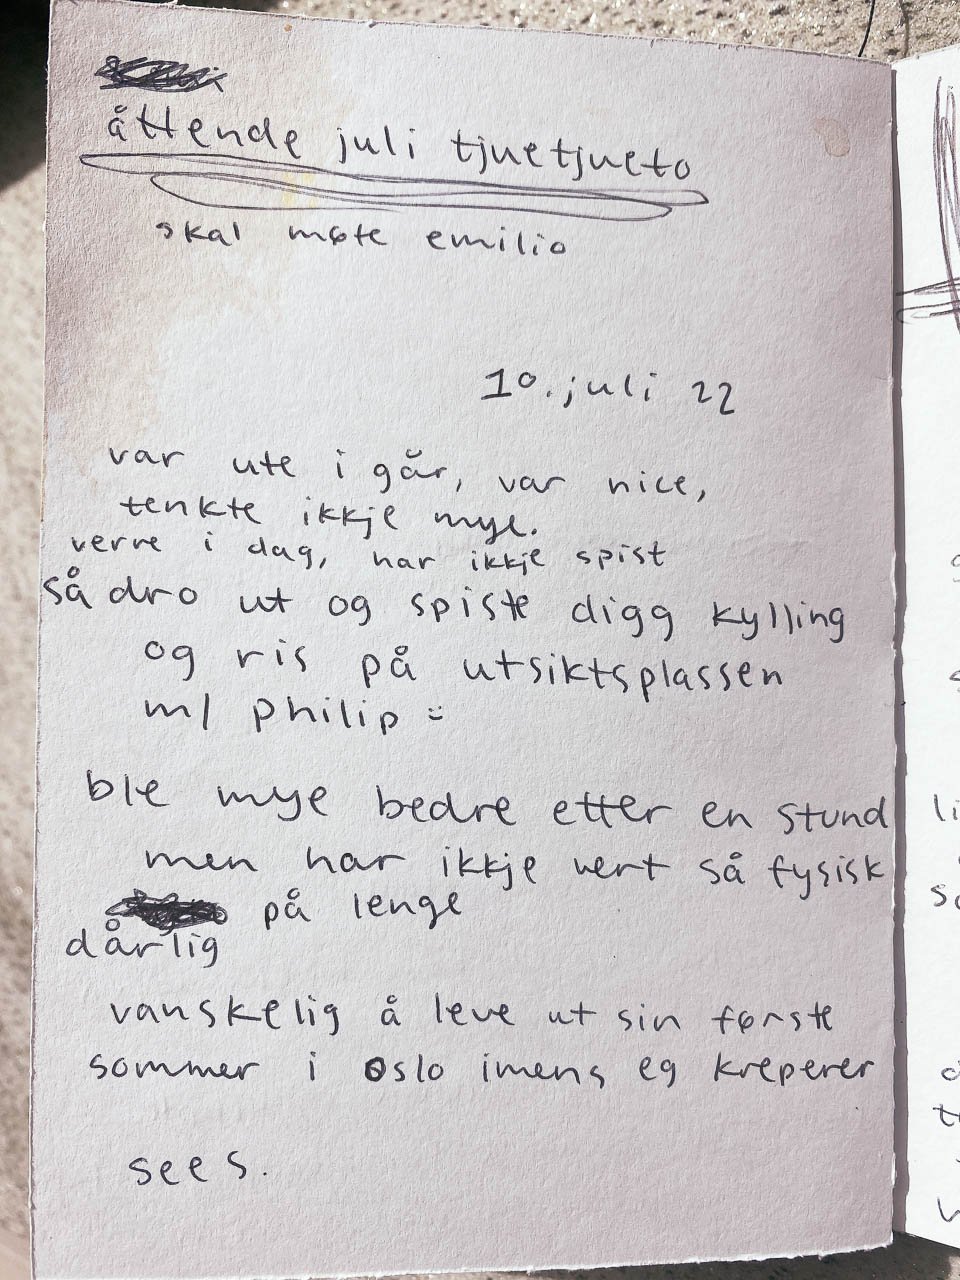 åttende juli tjuetjueto
skal møte emilio
10. juli 22
var ute i går, var nice,
tenkte ikkje mye.
verre i dag, har ikkje spist
så dro ut og spiste digg kylling
og ris på utsiktsplassen
m/ philip
ble mye bedre etter en stund
men har ikkje vert så fysisk
på lenge
dårlig
vanskelig å leve ut sin første
sommer i oslo imens eg kreperer
sees.